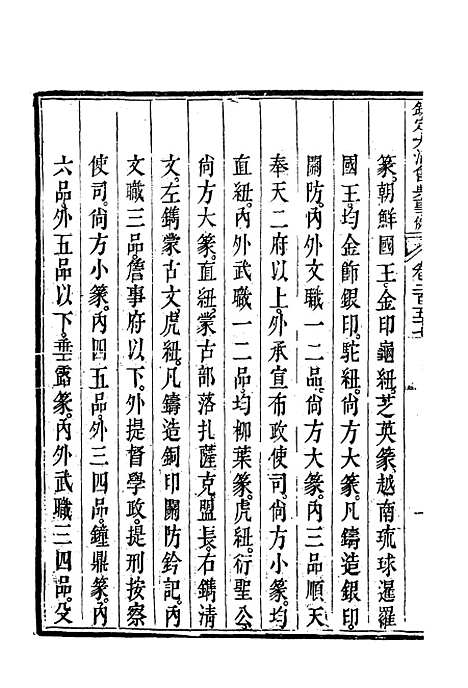 欽定大清會典事例 卷三百五十七 一
篆。朝鮮國王。金印龜紐。芝英篆。越南琉球暹羅
國王。均金飾銀印。駝紐。尚方大篆。凡鑄造銀印。
關防。內外文職一二品。尚方大篆。內三品順天
奉天二府以上。外承宣布政使司。尚方小篆。均
直紐。內外武職一二品。均柳葉篆。虎紐。衍聖公。
尚方大篆。直紐。蒙古部落扎薩克盟長。右鐫清
文。左鐫蒙古文。虎紐。凡鑄造銅印關防鈐記。內
文職三品。詹事府以下。外提督學政。提刑按察
使司。尚方小篆。內四五品。外三四品。鐘鼎篆。內
六品。外五品以下。垂露篆。內外武職三四品。殳